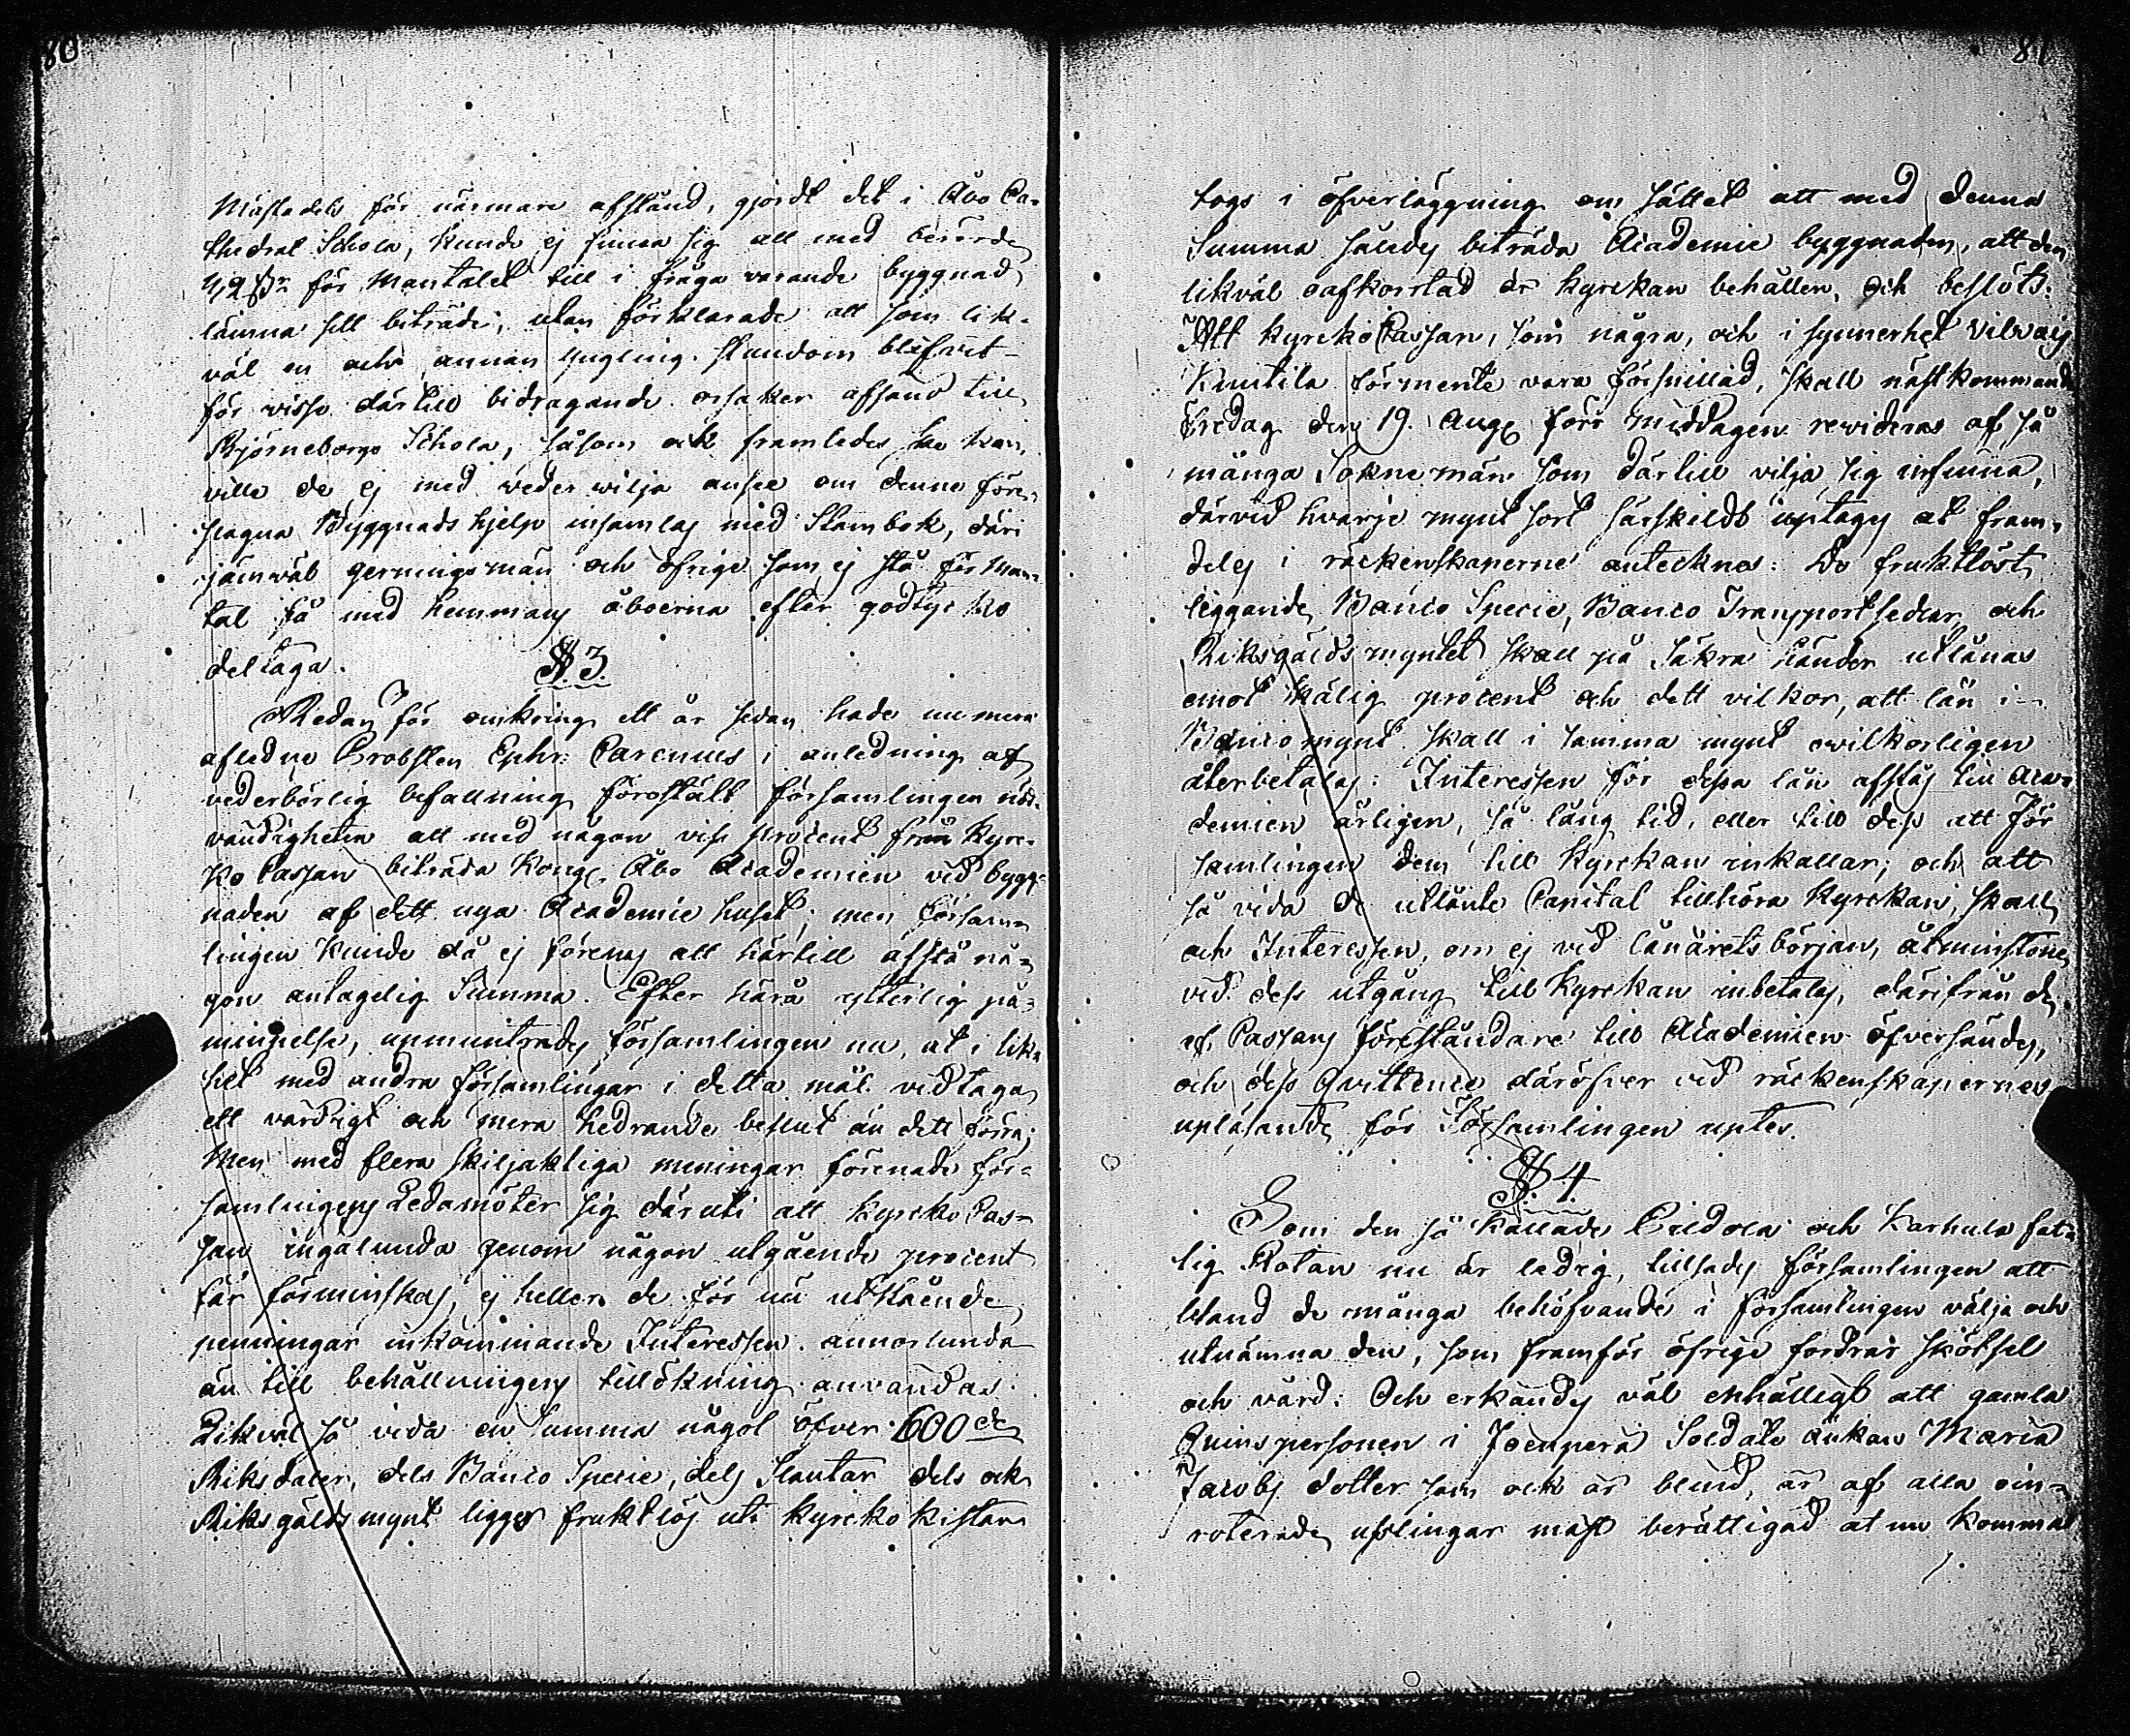 80
Mästadels för närmare afstånd, gjordt det i Åbo Ca-
thedral Schola, kunde ej finna sig att med berörde
för Mantalet till i fråga varande byggnad
lämna sitt biträde; utan förklarade att som lik-
väl en och annan yngling stundom blifvit
för visse därtill bidragande orsaker afsänd till
Björneborgs Schola, såsom ock framledes ske kan,
ville de ej med wederwilja ansee om denne före-
slagna Byggnads hjelp insamlas med Stambok, däri
jämwäl gerningsmän och öfrige som ej stå för Man-
tal få med hemmans åboerna efter godtycko
deltaga.
§. 3.
Redan för omkring ett år sedan hade numera
afledne Probsten Ephr: Carenius i anledning af
vederbörlig befallning föreställt församlingen nöd-
vändigheten att med någon viss procent från Kyrc-
ko Cassan biträda Kongl. Åbo Academien vid bygg-
naden af dett nya Academie huset; men Försam-
lingen kunde då ej förenas att härtill afstå nå-
gon antagelig Summa. Efter härå ytterlig på-
minnelse, upmuntrades församlingen nu, at i lik-
het med andra församlingar i detta mål vidtaga
ett värdigt och mera hedrande beslut än dett förra;
Men med flera skiljaktiga meningar förenade för-
samlingens Ledamöter sig däruti att Kyrcko Cas-
san ingalunda genom någon utgående procent
får förminskas, ej heller de för nu utstående
penningar inkommande Interessen annorlunda
än till behållningens tillökning användas.
Likväl så vida en Summa något öfver 600 de
Riksdaler, dels Banco Specie, dels Slantar dels ock
Riksgälds mynt ligger fruktlös uti Kyrcko Kistan
81
togs i öfverläggning om sättet att med denna
Summa således biträda Academie byggnaden, att den
likväl oafkortad är Kyrckan behållen, och beslöts:
Att Kyrcko Cassan, som några, och i synnerhet
Kuutila förmente vara förspilld, skall nästkommande
Fredag den 19. Aug. före Middagen revideras af så
många Sokne män som därtill vilja sig infinna,
därvid hvarje mynt sort särskildt uptages at fram-
deles i räckenskaperne antecknas: De fruktlöst
liggande Banco Specie, Banco Transportsedlar och
Riksgälds myntet skall på Säkra händer utlånas
emot skälig procent och dett vilkor, att lån i
Banco mynt skall i samma mynt ovilkorligen
återbetalas: Interessen för dessa lån afstås till Aca-
demien årligen, så lång tid, eller till dess att För
samlingen dem till Kyrckan inkallar; och att
så vida de utlånte Capital tillhöra Kyrckan, skall
och Interessen, om ej vid lånårets början, åtminstone
vid dess utgång till Kyrckan inbetalas, därifrån de
af Cassans föreståndare till Academien öfversändes,
och dess Qvittence däröfver vid räckenskapernes
upläsande för Församlingen uptes.
§. 4.
Som den så kallade och Karhula fat-
tig Rotan nu är ledig, tillsades församlingen att
bland de många behöfvande i församlingen välja och
utnämna den, som framför öfrige fordrar skötsel
och vård: Och erkändes väl enhälligt att gamla
Qvinspersonen i Isenperä Soldate änkan Maria
Jacobs dotter som ock är blind, är af alla oin-
roterade usslingar mäst berättigad at nu komma